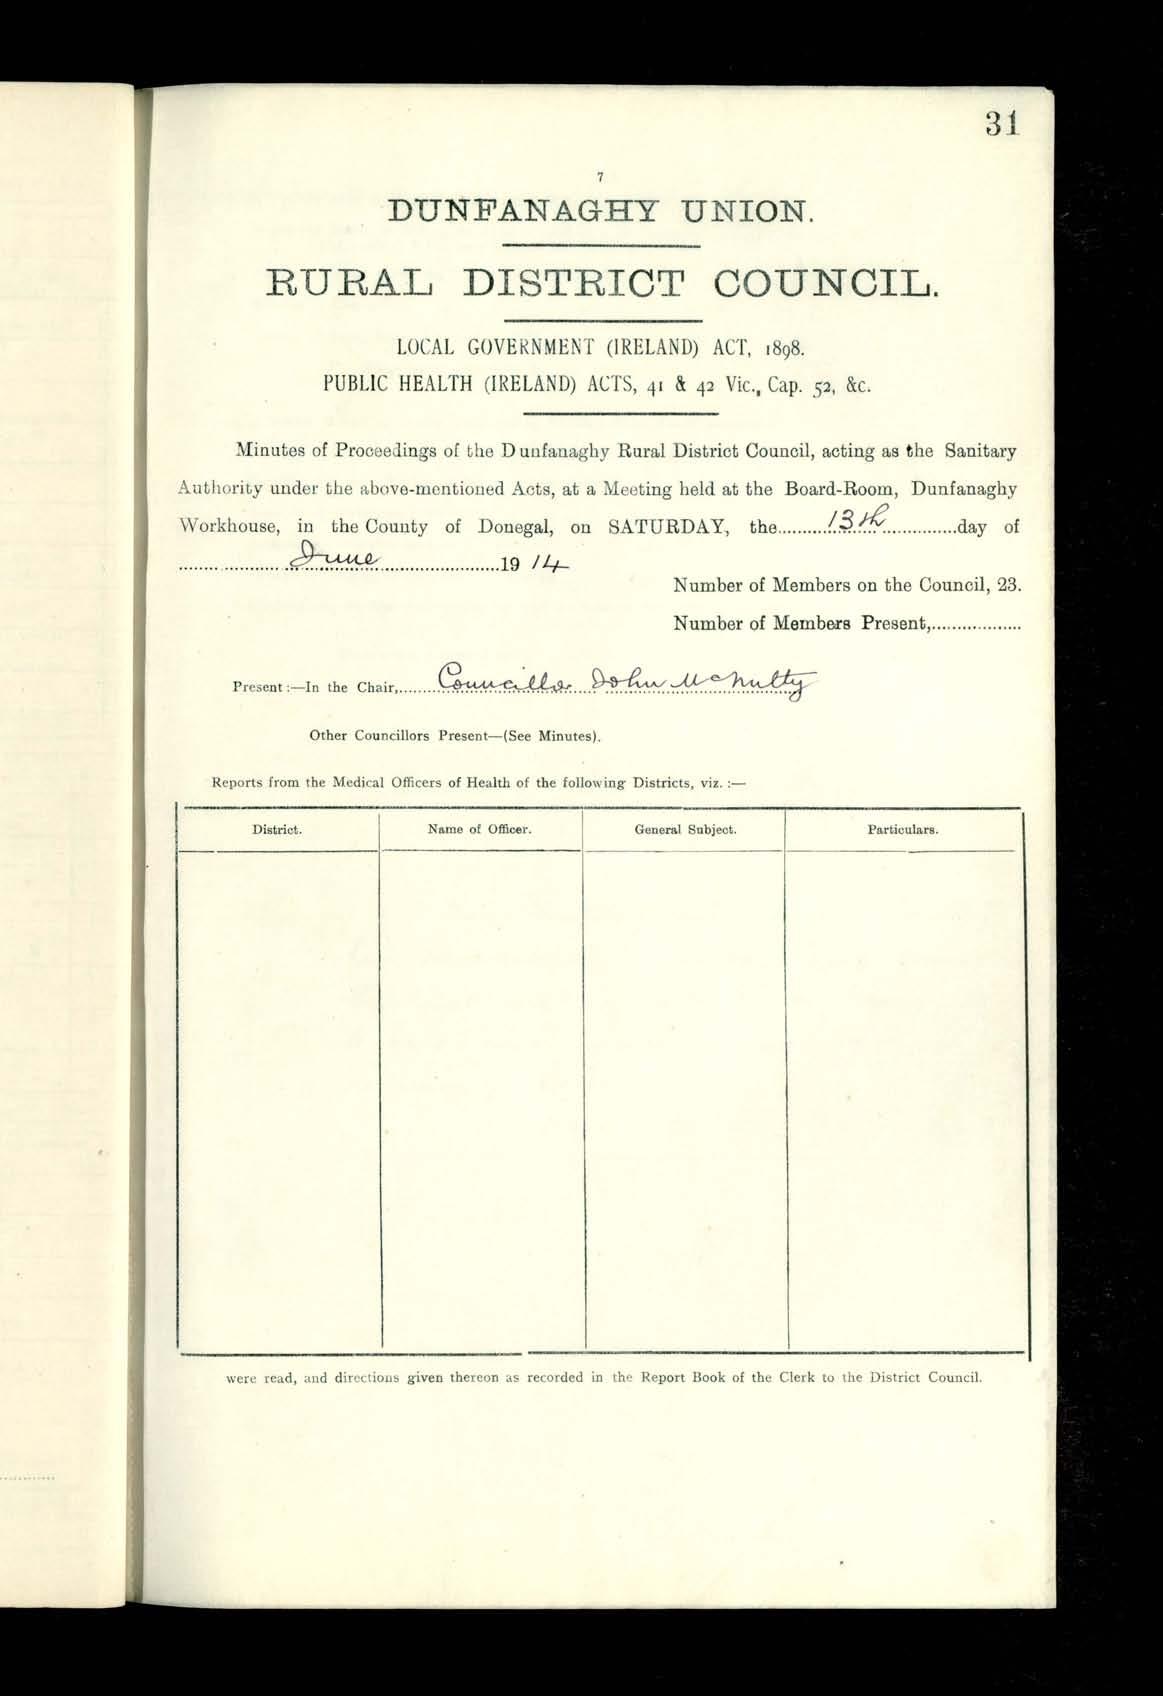 31
7
DUNFANAGHY UNION.
RURAL DISTRICT COUNCIL.
LOCAL GOVERNMENT (IRELAND) ACT, 1898.
PUBLIC HEALTH (IRELAND) ACTS, 41 & 42 Vic., Cap. 52, &c.
Minutes of Proceedings of the Dunfanaghy Rural District Council, acting as the Sanitary
Authority under the above-mentioned Acts, at a Meeting held at the Board-Room, Dunfanaghy
Workhouse, in the County of Donegal, on SATURDAY, the 13th day of
June 1914
Number of Members on the Council, 23.
Number of Members Present,
Present:—In the Chair, Councillor John McNulty
Other Councillors Present—(See Minutes).
Reports from the Medical Officers of Health of the following Districts, viz. :—
District. Name of Officer. General Subject. Particulars.
were read, and directions given thereon as recorded in the Report Book of the Clerk to the District Council.